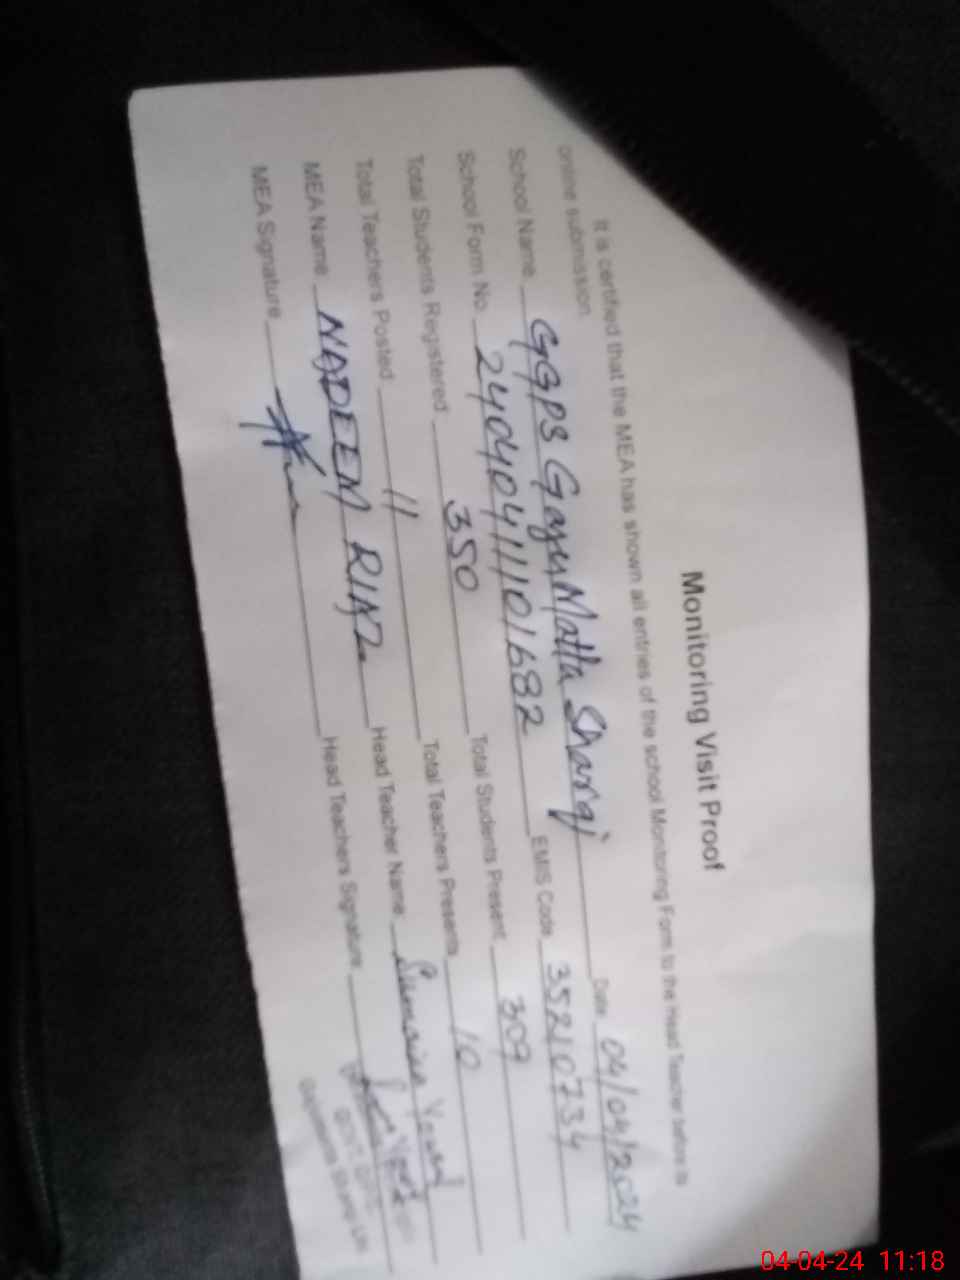 Monitoring Visit Proof
It is certified that the MEA has shown all entries of the school Monitoring Form to the Head Teacher before its
online submission.
School Name GGPS Gajju Matta Sharqi Date 04/04/2024
School Form No. 24040411101682 EMIS Code 35210734
Total Students Registered 350 Total Students Present 309
Total Teachers Posted 11 Total Teachers Presents 10
MEA Name NADEEM RIAZ Head Teacher Name Sumaira Yousaf
MEA Signature Head Teachers Signature
04-04-24 11:18